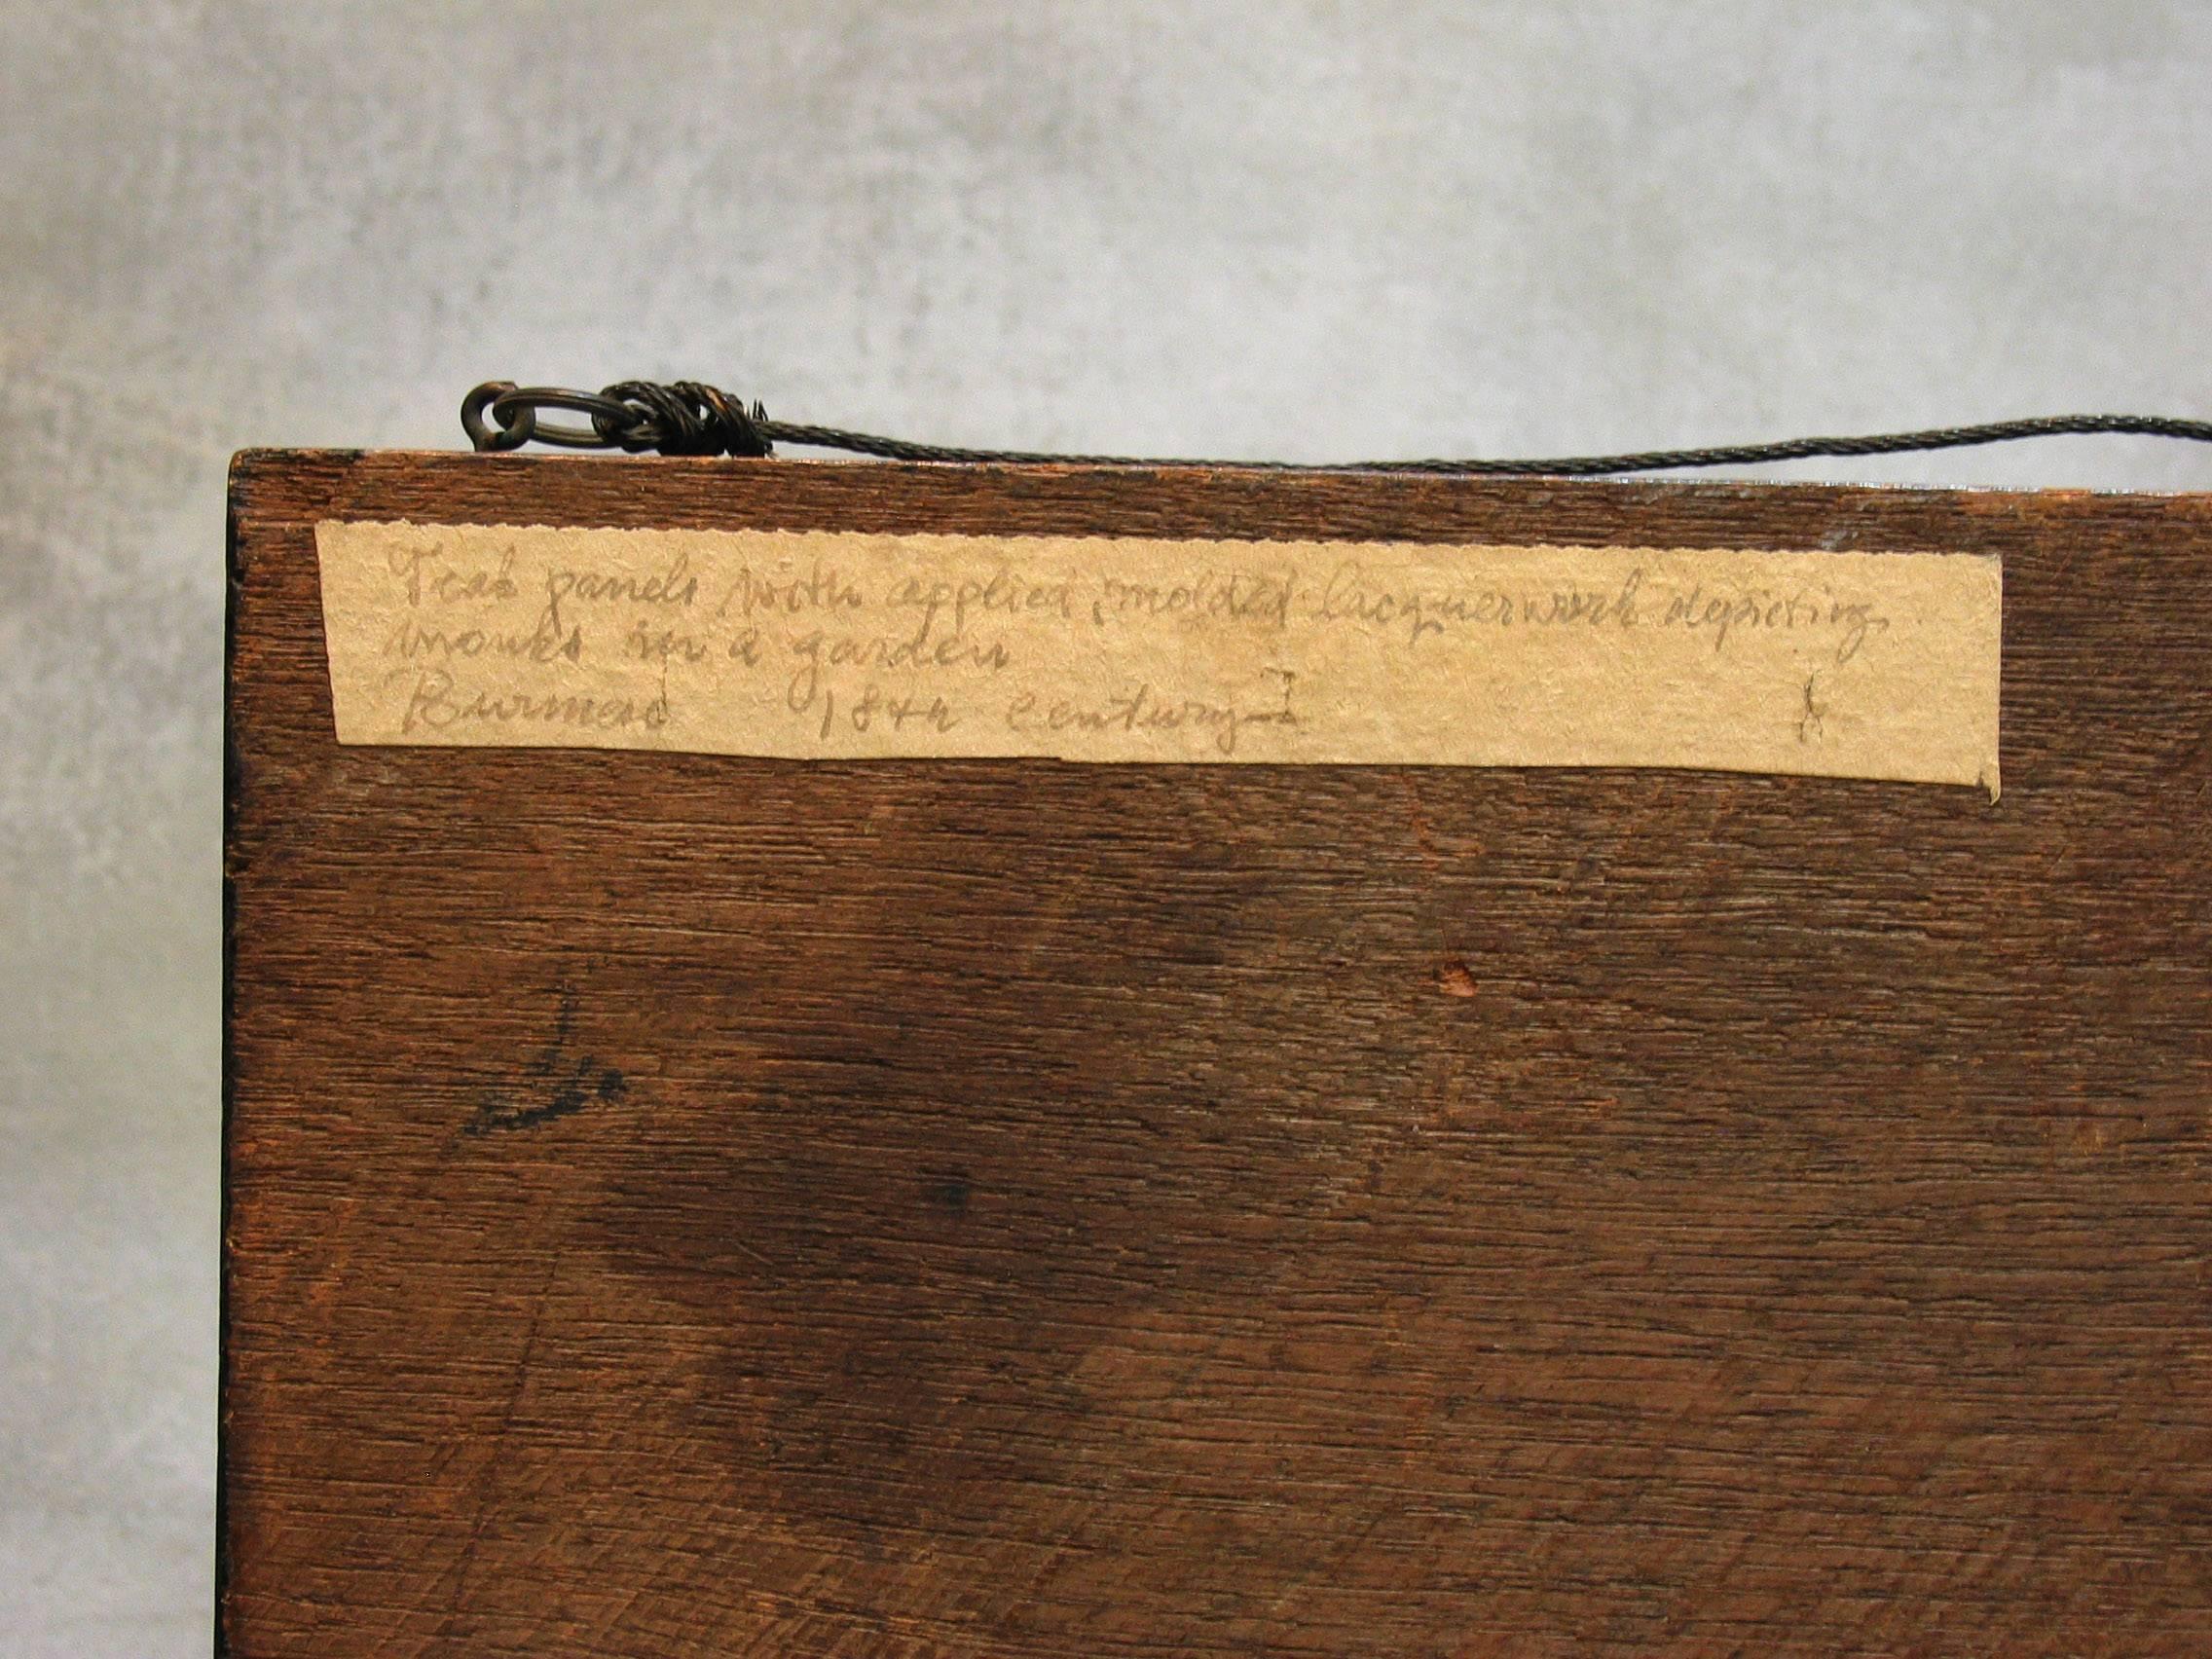 Teak panels with applied, molded lacquerwork depicting
monks in a garden
Burmese 18th century